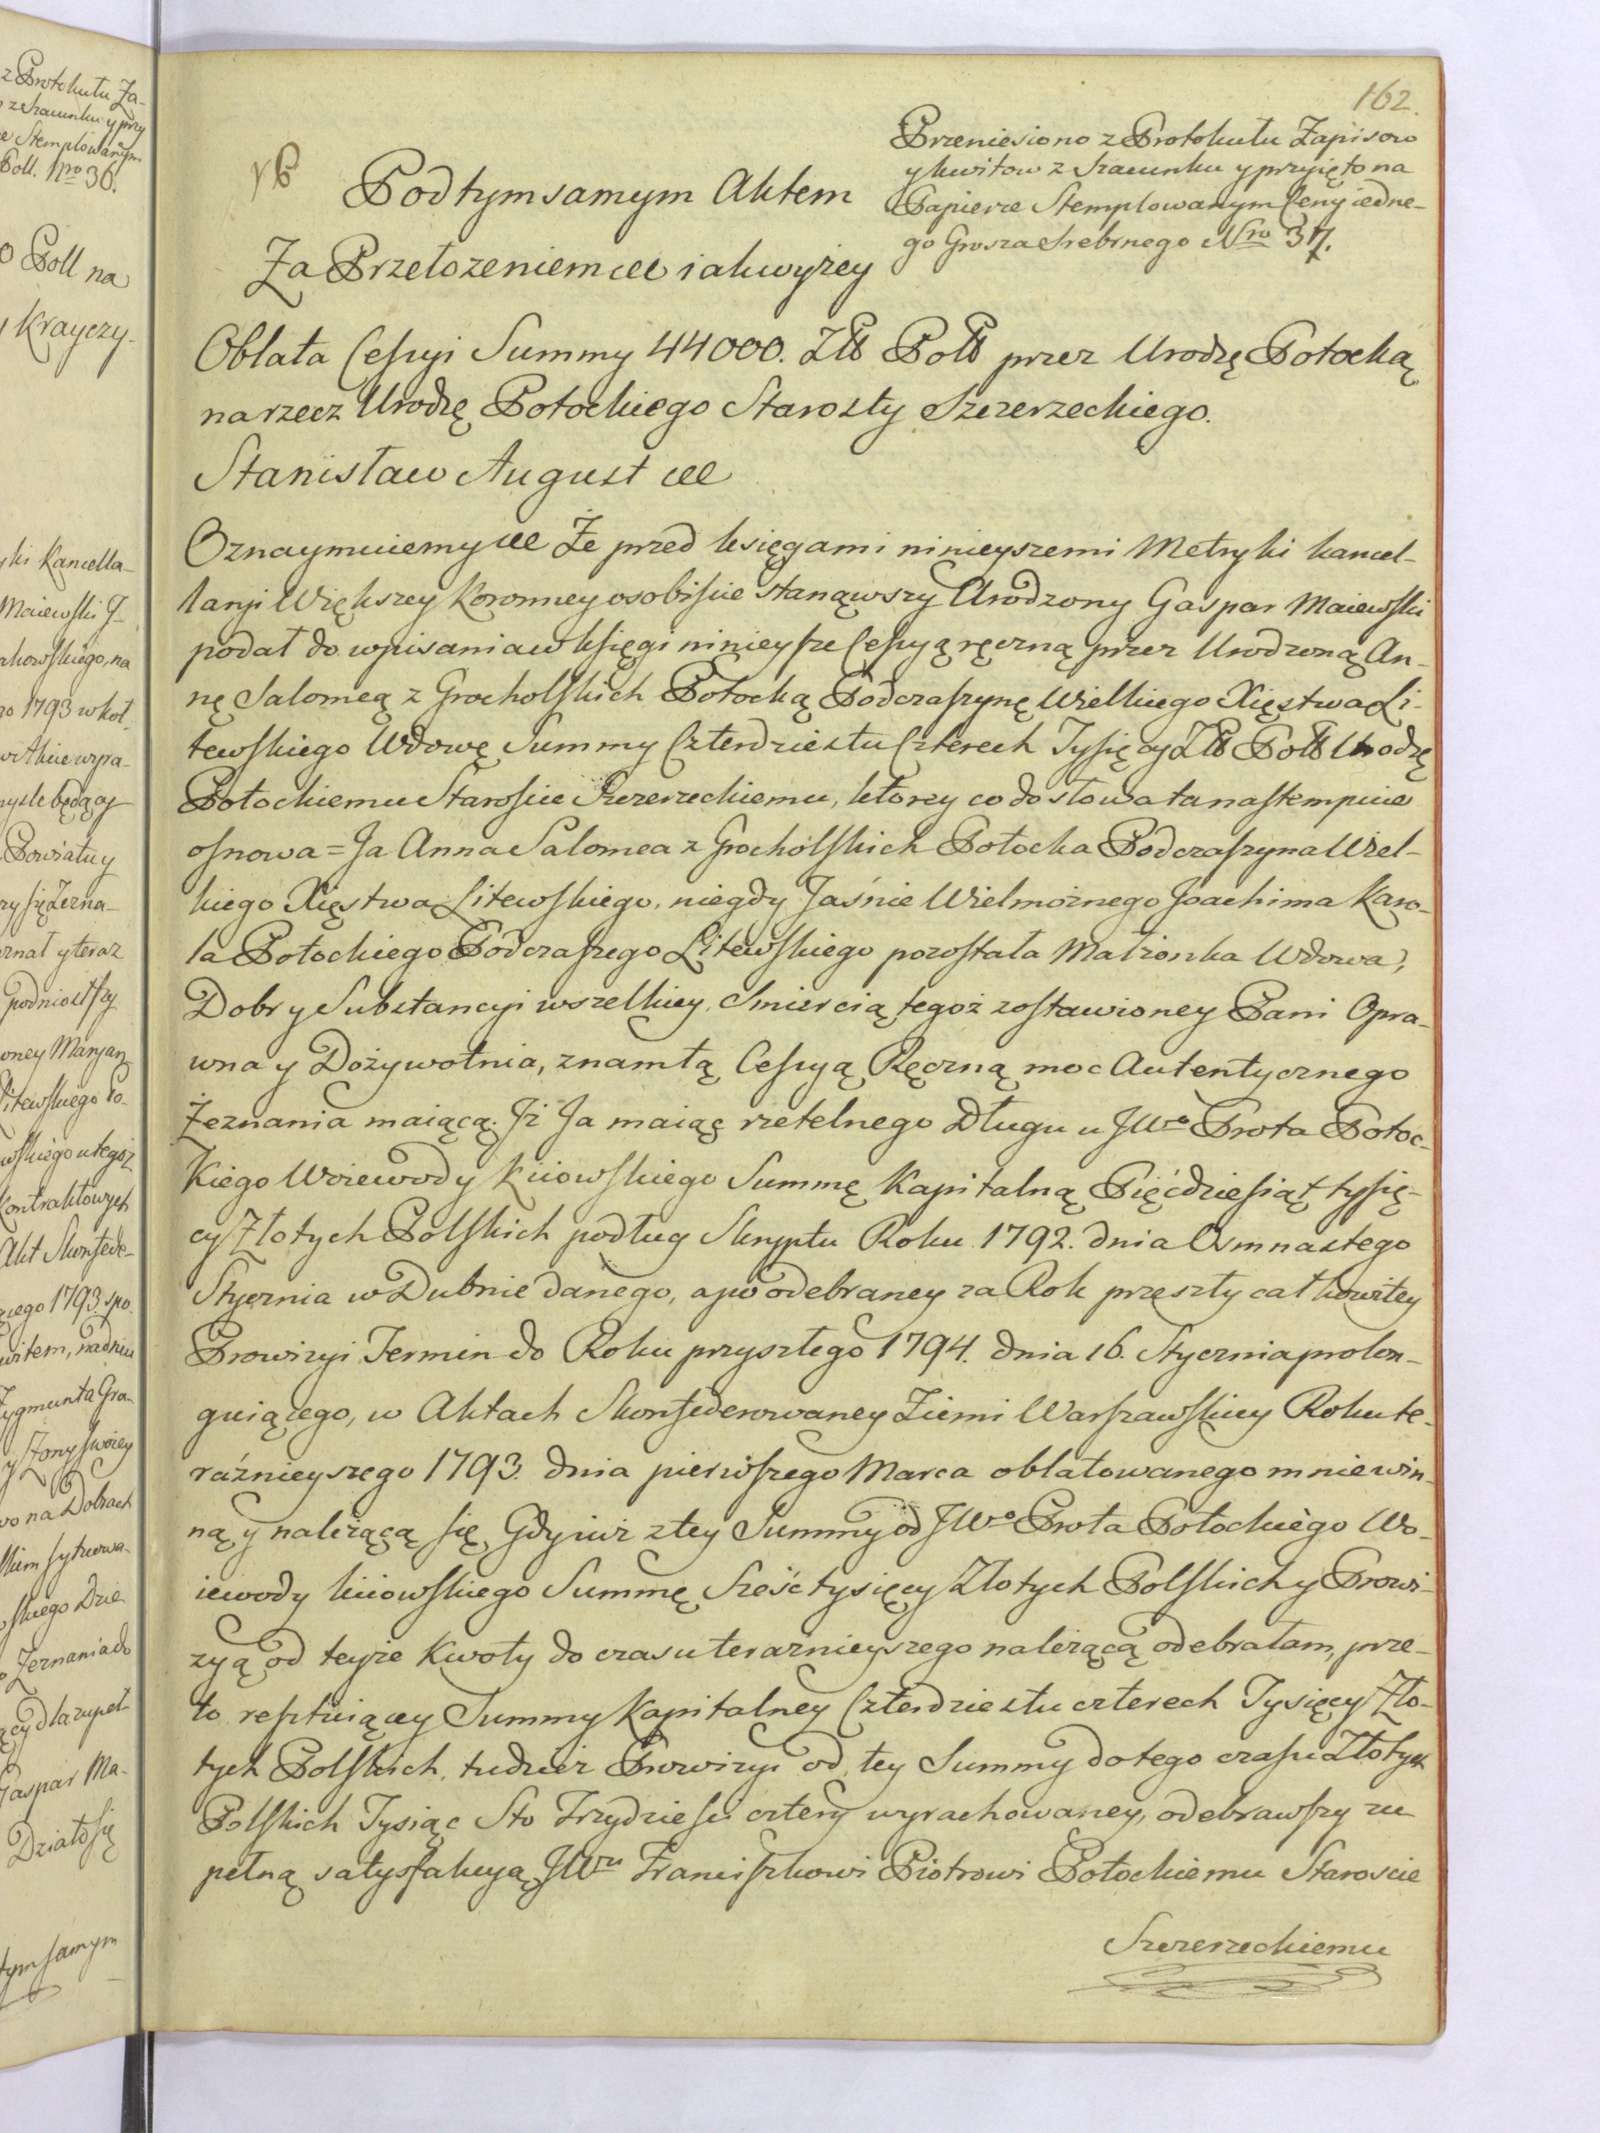 162.
Przeniesiono z Protokułu Zapisow
y kwitow z Szacunku y przyięto na
Papierze Stemplowanym Ceny iedne-
go Grosza Srebrnego Nro 37.
Pod tym samym Aktem
Za Przełożeniem etc iak wyżey
Oblata Cessyi Summy 44000. Złł Poll przez Urodzę Potocką
na rzecz Urodzę Potockiego Starosty Szczerzeckiego.
Stanisław August etc
Oznaymuiemy etc Że przed księgami ninieyszemi Metryki kancel-
laryi Większey Koronney osobiście stanąwszy Urodzony Gaspar Maiewski
podał do wpisania w księgi ninieysze Cessyą ręczną przez Urodzoną An-
nę Salomeą z Grocholskich Potocką Podczaszynę Wielkiego Xięstwa Li-
tewskiego Wdowę Summy Czterdziestu Czterech Tysięcy Złł Poll Urodzę
Potockiemu Staroście Szczerzeckiemu, ktorey co do słowa ta nastempuie
osnowa = Ja Anna Salomea z Grocholskich Potocka Podczaszyna Wiel-
kiego Xięstwa Litewskiego, niegdy Jaśnie Wielmożnego Joachima Karo-
la Potockiego Podczaszego Litewskiego pozostała Małżonka Wdowa,
Dobr y Substancyi wszelkiey, Smiercią tegoż zostawioney Pani Opra-
wna y Dożywotnia, znam tą Cessyą Ręczną moc Autentycznego
Zeznania maiącą. Jż Ja maiąc rzetelnego Długu u JWo Prota Potoc-
kiego Woiewody Kiiowskiego Summę Kapitalną Pięćdziesiąt tysię-
cy Złotych Polskich podług Skryptu Roku 1792. dnia Osmnastego
Stycznia w Dubnie danego, a po odebraney za Rok przeszły całkowitey
Prowizyi Termin do Roku przyszłego 1794. dnia 16. Stycznia prolon-
guiącego, w Aktach Skonfederowaney Ziemi Warszawskiey Roku te-
raźnieyszego 1793. dnia pierwszego Marca oblatowanego mnie win-
ną y należącą się, Gdy iuż z tey Summy od JWo Prota Potockiego Wo-
iewody kiiowskiego Summę Sześć tysięcy Złotych Polskich y Prowi-
zyą od teyże Kwoty do czasu teraznieyszego należącą odebrałam, prze-
to resztuiącey Summy Kapitalney Czterdziestu czterech Tysięcy Zło-
tych Polskich, tudzież Prowizyi od tey Summy do tego czasu Złotych
Polskich Tysiąc Sto Trzydzieści cztery wyrachowaney, odebrawszy zu
pełną satysfakcyą, JWu Franciszkowi Piotrowi Potockiemu Staroscie
Szczerzeckiemu